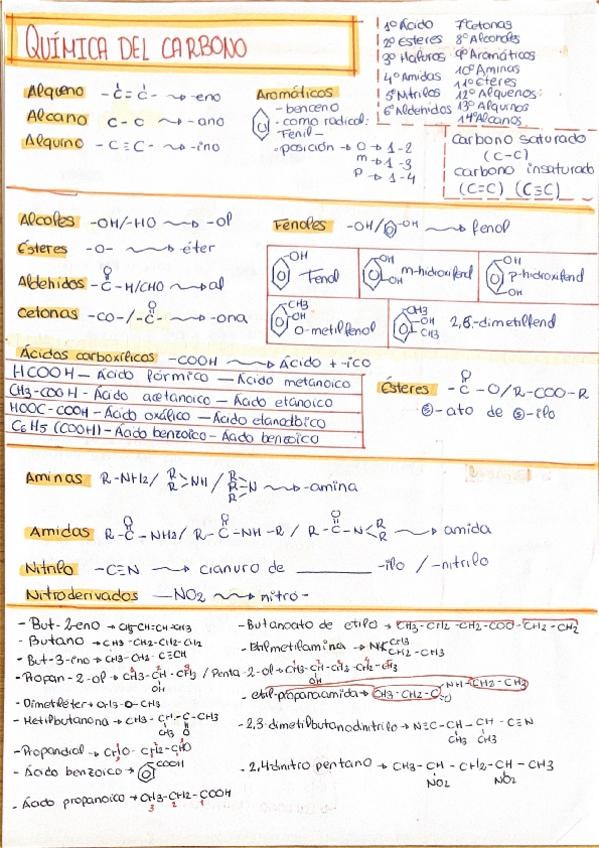 QUÍMICA DEL CARBONO
1º Ácido 7º Cetonas
2º Esteres 8º Alcoholes
3º Haluros 9º Aromáticos
4º Amidas 10º Aminas
5º Nitrilos 11º Éteres
6º Aldehidos 12º Alquenos
13º Alquinos
14º Alcanos
Alqueno -C=C- → -eno
Alcano C-C → -ano
Alquino -C≡C- → -ino
Aromáticos
- benceno
- como radical:
Fenil-
- posición → O → 1-2
m → 1-3
P → 1-4
Carbono saturado
(C-C)
carbono insaturado
(C=C) (C≡C)
Alcoles -OH/-HO → -ol
Ésteres -O- → éter
Aldehidos -C-H/CHO → al
O
Cetonas -CO-/-C- → -ona
O
Fenoles -OH/ -OH → fenol
OH Fenol
OH OH m-hidroxifenol
OH OH p-hidroxifenol
CH3 OH O-metilfenol
CH3 OH CH3 2,6-dimetilfenol
Ácidos carboxílicos -COOH → Ácido + -ico
HCOOH - Ácido fórmico - Ácido metanoico
CH3-COOH - Ácido acetanoico - Ácido etanoico
HOOC-COOH - Ácido oxálico - Ácido etanodioico
C6H5 (COOH) - Ácido benzoico - Ácido benzoico
Ésteres -C-O/R-COO-R
O
-ato de -ilo
Aminas R-NH2/ R R >NH / R R R >N → -amina
Amidas R-C-NH2/ R-C-NH-R/ R-C-N<R R → amida
O O O
Nitrilo -C≡N → cianuro de ______ -ilo / -nitrilo
Nitroderivados -NO2 → nitro-
- But-2-eno → CH3-CH=CH-CH3
- Butano → CH3-CH2-CH2-CH3
- But-3-ino → CH3-CH2-C≡CH
- Propan-2-ol → CH3-CH-CH3 / Penta-2-ol → CH3-CH-CH2-CH2-CH3
OH OH
- Dimetiléter → CH3-O-CH3
- Metilbutanona → CH3-CH-C-CH3
CH3 O
- Propandial → CHO-CH2-CHO
- Ácido benzoico → COOH
- Ácido propanoico → CH3-CH2-COOH
3 2 1
- Butanoato de etilo → CH3-CH2-CH2-COO-CH2-CH3
- Etilmetilamina → NH CH3
CH2-CH3
- etil-propanoamida → CH3-CH2-C NH-CH2-CH3
O
- 2,3-dimetilbutanodinitrilo → N≡C-CH-CH-C≡N
CH3 CH3
- 2,4-dinitro pentano → CH3-CH-CH2-CH-CH3
NO2 NO2